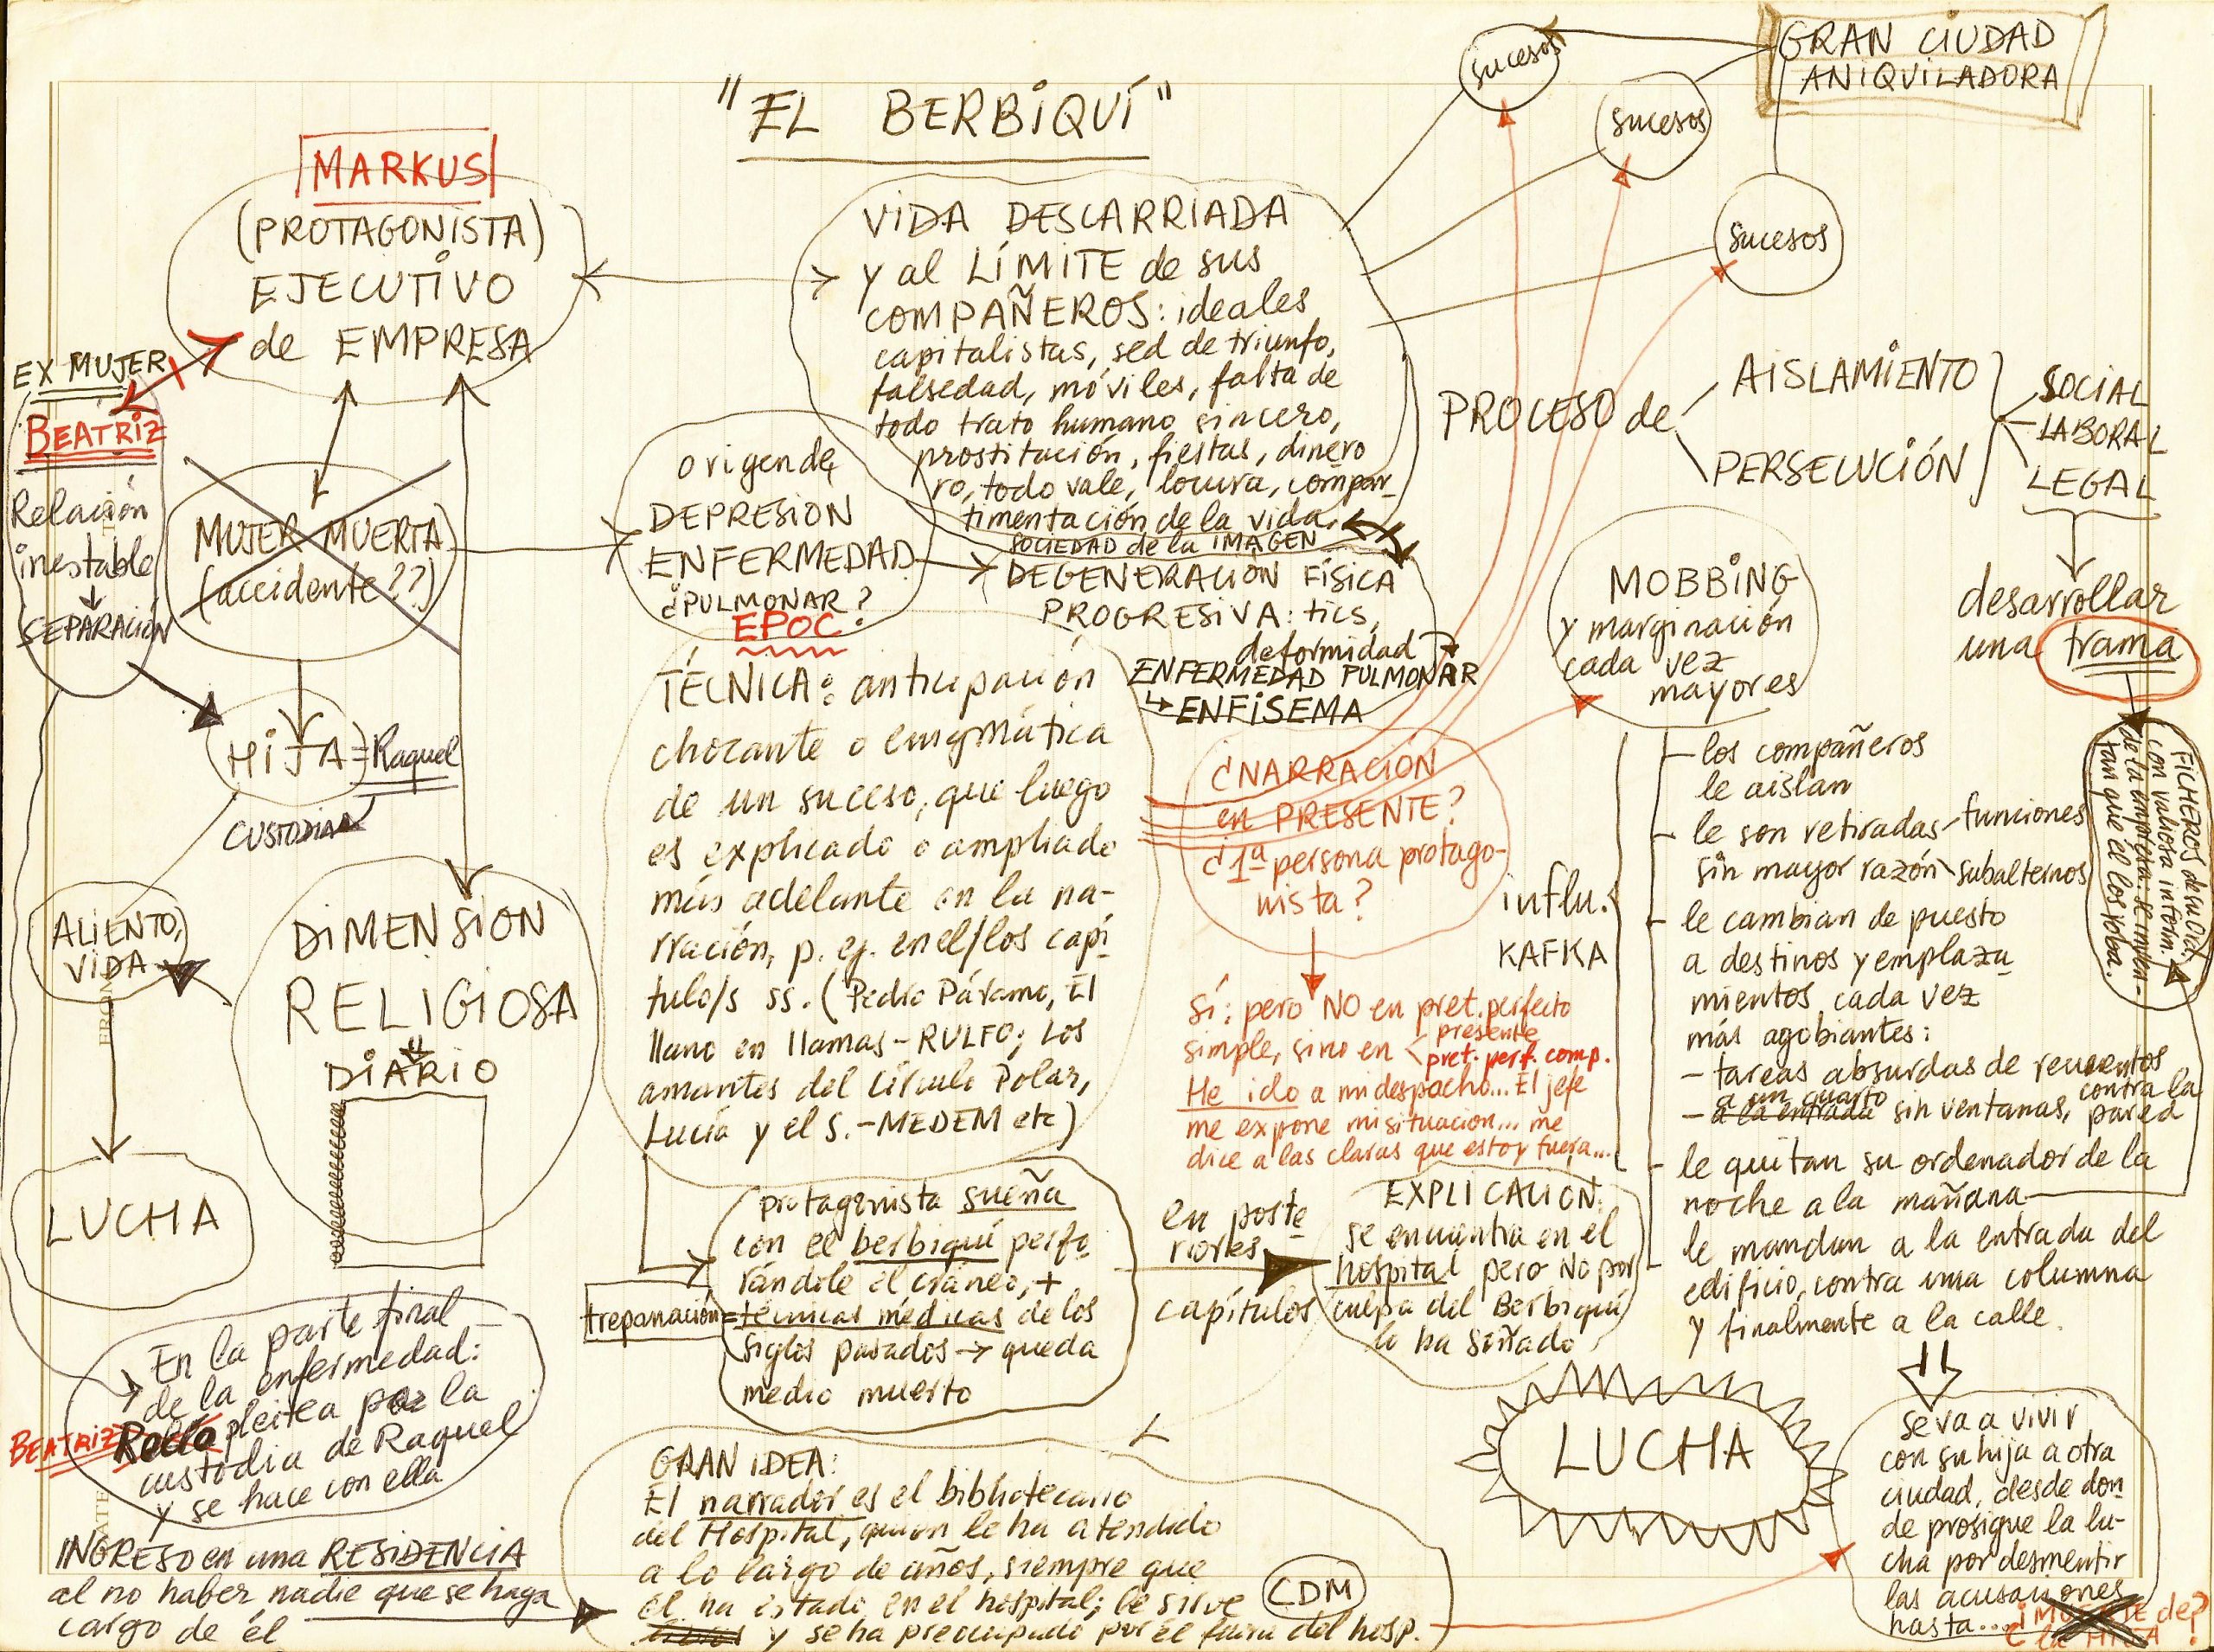 "EL BERBIQUÍ"
GRAN CIUDAD
ANIQUILADORA
sucesos
sucesos
sucesos
MARKUS
(PROTAGONISTA)
EJECUTIVO
de EMPRESA
EX MUJER
BEATRIZ
Relación
inestable
↓
SEPARACIÓN
MUJER MUERTA
(accidente??)
HIJA = Raquel
CUSTODIA
ALIENTO,
VIDA
LUCHA
DIMENSION
RELIGIOSA
DIARIO
En la parte final
de la enfermedad:
BEATRIZ pleitea por la
custodia de Raquel
y se hace con ella
INGRESO en una RESIDENCIA
al no haber nadie que se haga
cargo de él
VIDA DESCARRIADA
y al LÍMITE de sus
COMPAÑEROS: ideales
capitalistas, sed de triunfo,
falsedad, móviles, falta de
todo trato humano sincero,
prostitución, fiestas, dinero
ro, todo vale, locura, compar-
timentación de la vida.
SOCIEDAD de la IMAGEN
origen de
DEPRESION
ENFERMEDAD
¿PULMONAR?
EPOC
DEGENERACIÓN FÍSICA
PROGRESIVA: tics,
deformidad
ENFERMEDAD PULMONAR
↳ ENFISEMA
TÉCNICA: anticipación
chocante o enigmática
de un suceso, que luego
es explicado o ampliado
más adelante en la na-
rración, p. ej. en el/los capí
tulo/s ss. (Pedro Páramo, El
llano en llamas - RULFO; Los
amantes del Círculo Polar,
Lucía y el S. - MEDEM etc)
protagonista sueña
con el berbiquí perfo
rándole el cráneo, +
trepanación = técnicas médicas de los
siglos pasados → queda
medio muerto
en poste
riores
capítulos
EXPLICACION:
se encuentra en el
hospital pero NO por
culpa del Berbiquí
lo ha soñado
GRAN IDEA:
El narrador es el bibliotecario
del Hospital, quien le ha atendido
a lo largo de años, siempre que
él ha estado en el hospital; le sirve CDM
libros y se ha preocupado por él fuera del hosp.
¿NARRACIÓN
en PRESENTE?
¿1ª persona protago-
nista?
Sí: pero NO en pret. perfecto
simple, sino en < presente
pret. perf. comp.
He ido a mi despacho... El jefe
me expone mi situación... me
dice a las claras que estoy fuera...
PROCESO de
AISLAMIENTO
PERSECUCIÓN
SOCIAL
LABORAL
LEGAL
desarrollar
una trama
FICHEROS de su ord.
con valiosa inform.
de la empresa: se inven-
tan que él los roba.
MOBBING
y marginación
cada vez
mayores
influ.
KAFKA
- los compañeros
le aislan
- le son retiradas - funciones
sin mayor razón subalternos
- le cambian de puesto
a destinos y emplaza
mientos cada vez
más agobiantes:
- tareas absurdas de recuentos
a un cuarto contra la
- a la entrada sin ventanas, pared
- le quitan su ordenador de la
noche a la mañana
- le mandan a la entrada del
edificio, contra una columna
y finalmente a la calle.
LUCHA
se va a vivir
con su hija a otra
ciudad, desde don
de prosigue la lu-
cha por desmentir
las acusaciones
hasta... ¿MUERTE de?